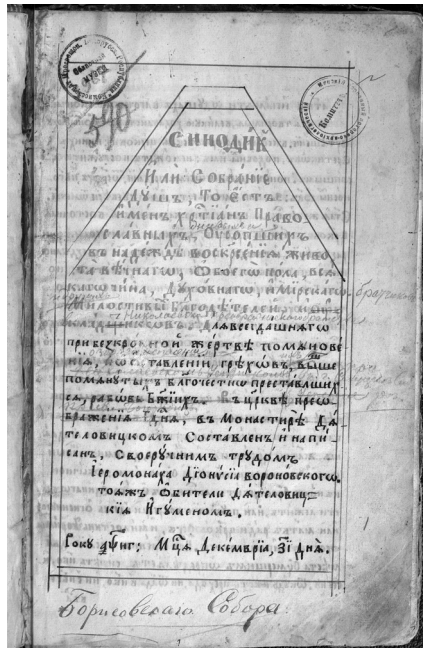 590
Комитетъ
Сѵнодїкъ
Или Собранїе
Душъ, То Єстъ:
Именъ хр҃тїанъ Право
славныхъ, Оусопшихъ
въ надеждѣ воскресенїя живо
та вѣчнаго, Обоегѡ пола, вся
кагѡ чина, Дꙋховнагѡ, и Мїрскагѡ
Милостивыхъ Бл҃годѣтелей,
Для всегдашнягѡ
при безкровной жертвѣ помянове
нїя, и ѡставленїи грѣхѡвъ, выше
помянꙋтыхъ благочестно преставлших
ся, рабѡвъ Бж҃їихъ. Въ цр҃квѣ прео
браженїя Гд҃ня, въ Монастирѣ Дя
теловицкомъ Составленъ и напи
санъ, Своерꙋчнимъ трꙋдомъ
Їеромонаха Дїонѵсїа вороновскогѡ.
тояжъ Обители Дятеловиц
кїя Игꙋменомъ.
Рокꙋ ҂аѱиг: Мц҃а Декемврїа, зі Дня.
Борисовскаго Собора.